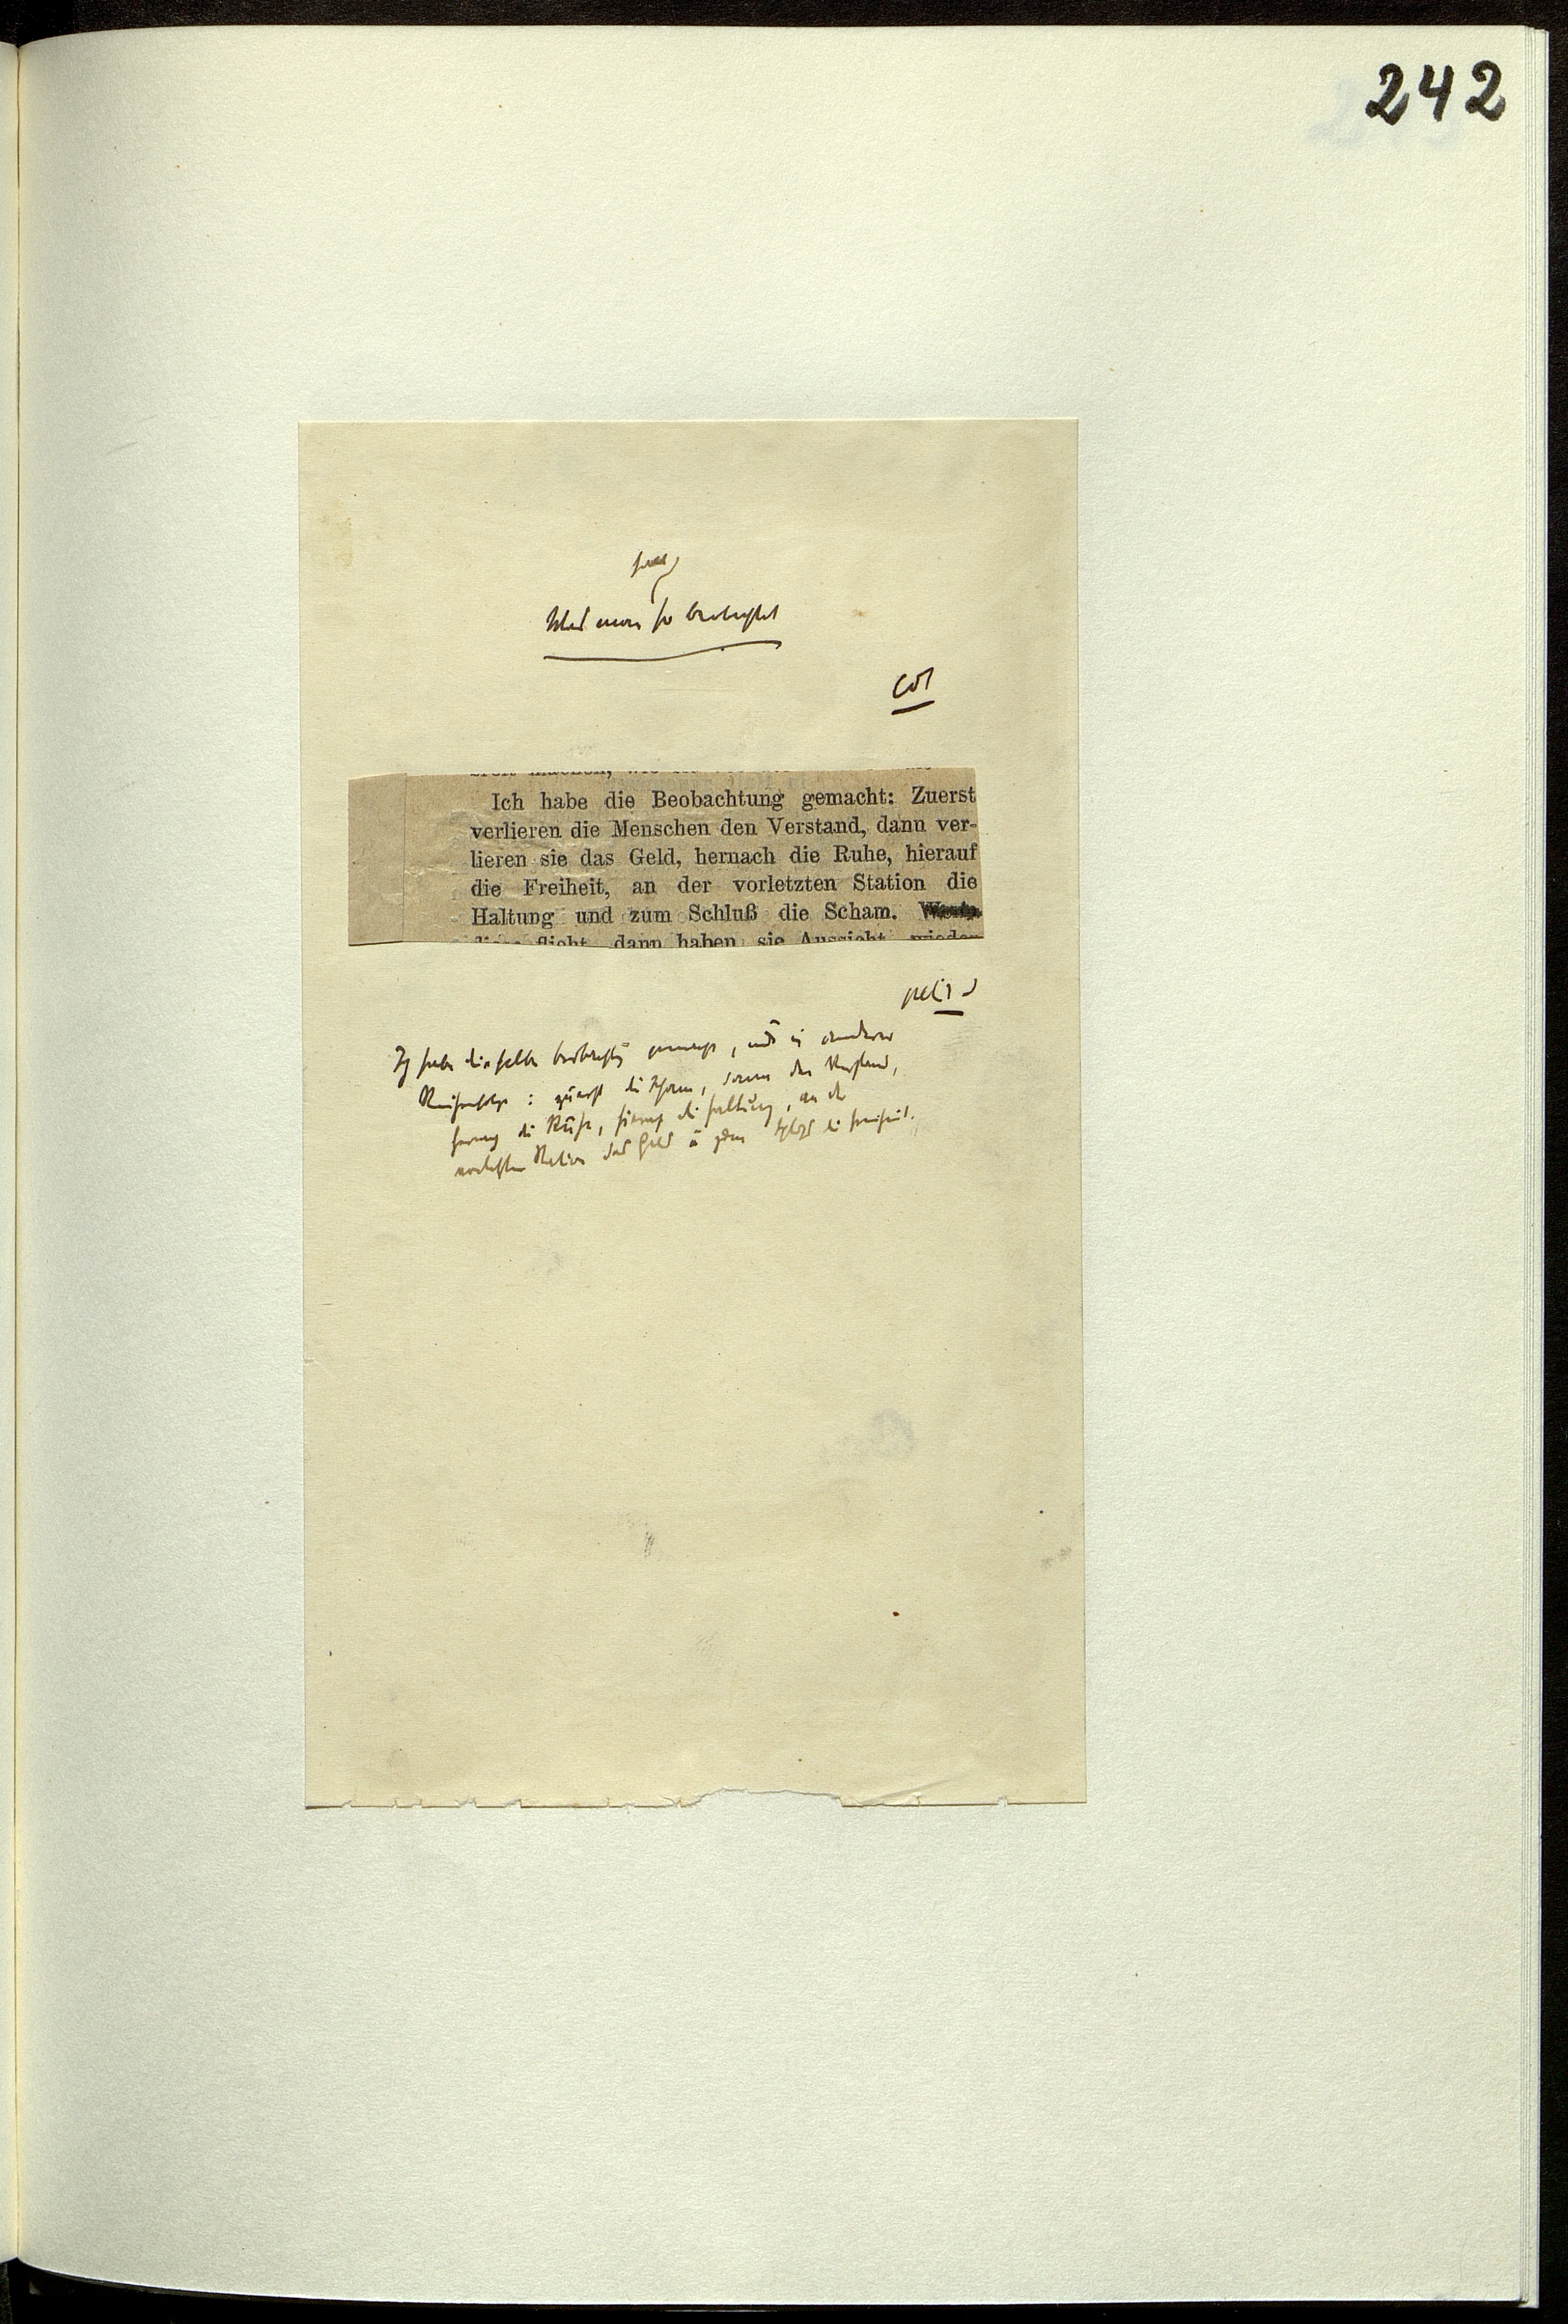 242
Was man so beobachtet
Col
Ich habe die Beobachtung gemacht: Zuerst
verlieren die Menschen den Verstand, dann ver-
lieren sie das Geld, hernach die Ruhe, hierauf
die Freiheit, an der vorletzten Station die
Haltung und zum Schluß die Scham.
flieht, dann haben sie Aussicht, wieder
petit
Ich habe dieselbe Beobachtung gemacht, nur in anderer
Reihenfolge: zuerst die Scham, dann den Verstand,
hernach die Ruhe, hierauf die Haltung, an der
vorletzten Station das Geld u zum Schluß die Freiheit.